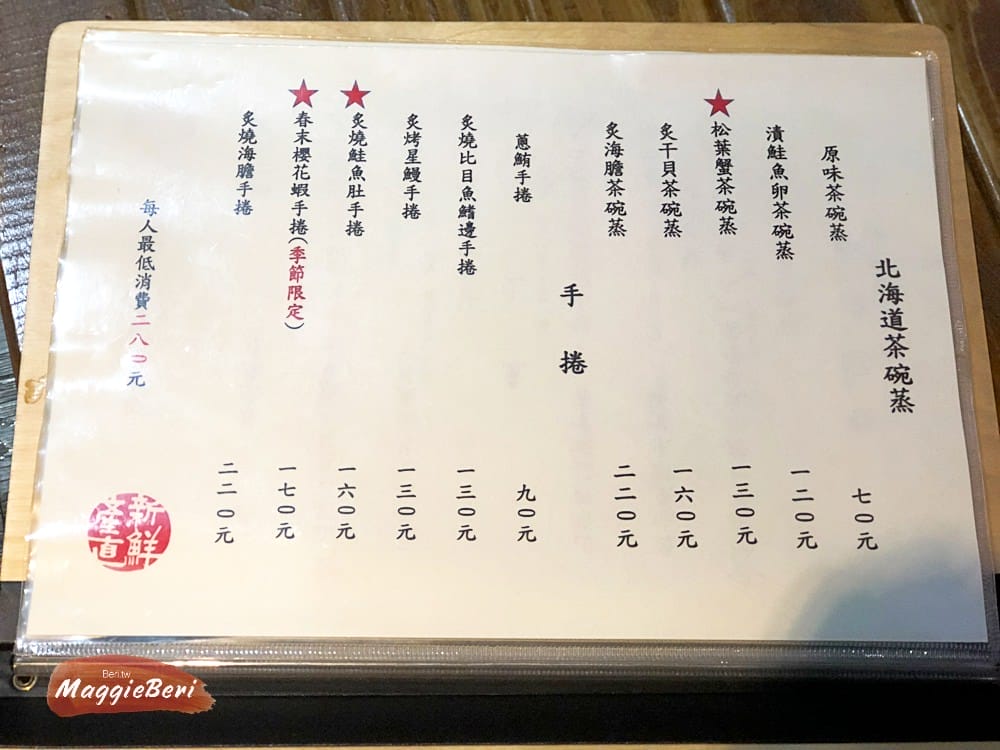 北海道茶碗蒸
原味茶碗蒸 七〇元
漬鮭魚卵茶碗蒸 一二〇元
★松葉蟹茶碗蒸 一三〇元
炙干貝茶碗蒸 一六〇元
炙海膽茶碗蒸 二二〇元
手捲
蔥鮪手捲 九〇元
炙燒比目魚鰭邊手捲 一三〇元
炙烤星鰻手捲 一三〇元
★炙燒鮭魚肚手捲 一六〇元
★春末櫻花蝦手捲(季節限定) 一七〇元
炙燒海膽手捲 二二〇元
每人最低消費二八〇元
新鮮
產直
Beri.tw
MaggieBeri